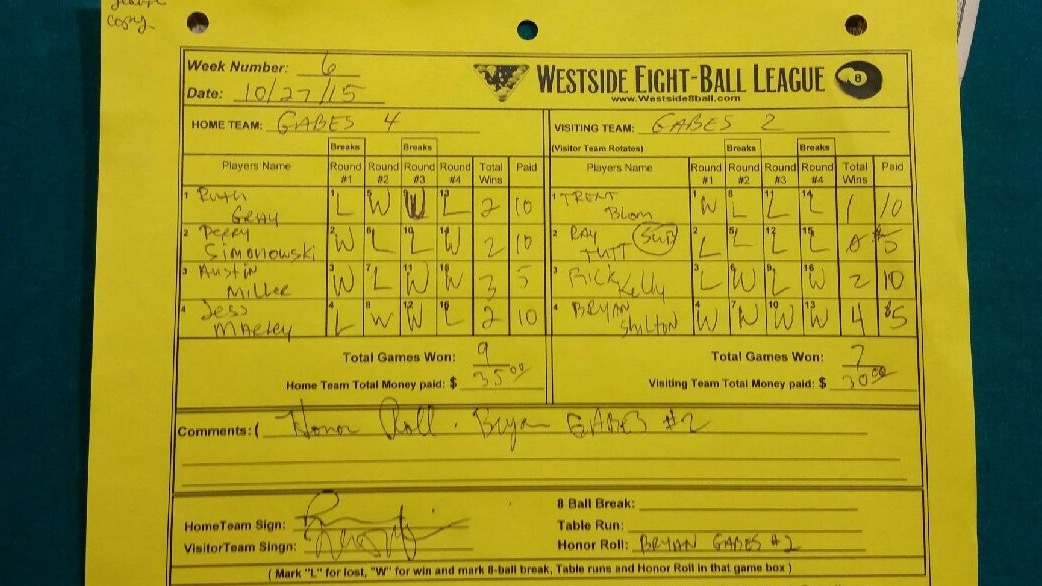 copy
Week Number: 6
Date: 10/27/15
WESTSIDE EIGHT-BALL LEAGUE 8
www.Westside8ball.com
HOME TEAM: GABES 4
VISITING TEAM: GABES 2
Breaks Breaks (Visitor Team Rotates) Breaks Breaks
Players Name Round #1 Round #2 Round #3 Round #4 Total Wins Paid Players Name Round #1 Round #2 Round #3 Round #4 Total Wins Paid
1 Ruth Gray 1 L 5 W 9 W 13 L 2 10 1 TRENT Blom 1 W 8 L 11 L 14 L 1 10
2 Perry Simonowski 2 W 6 L 10 L 14 W 2 10 2 RAY TUTT SUB 2 L 5 L 12 L 15 L 0 $5
3 Austin Miller 3 W 7 L 11 W 15 W 3 5 3 RICK Kelly 3 L 6 W 9 L 16 W 2 10
4 Jess Marley 4 L 8 W 12 W 16 L 2 10 4 BRYAN Shilton 4 W 7 W 10 W 13 W 4 $5
Total Games Won: 9 Total Games Won: 7
Home Team Total Money paid: $ 35.00 Visiting Team Total Money paid: $ 30.00
Comments:( Honor Roll . Bryan GABES #2
8 Ball Break:
HomeTeam Sign: Table Run:
VisitorTeam Singn: Honor Roll: BRYAN GABES #2
( Mark "L" for lost, "W" for win and mark 8-ball break, Table runs and Honor Roll in that game box )